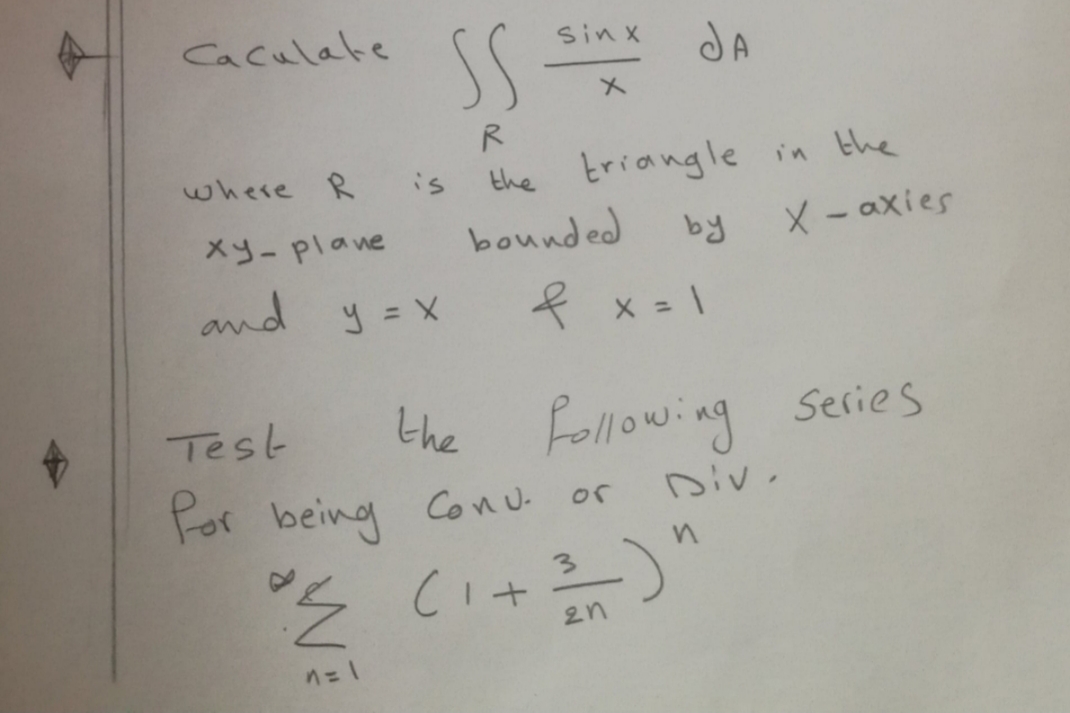 Caculate ∬_R sin x / x dA
where R is the triangle in the
xy-plane bounded by X-axies
and y = x & x = 1
Test the following series
for being Conv. or Div.
∞∑n=1 (1 + 3/2n)^n